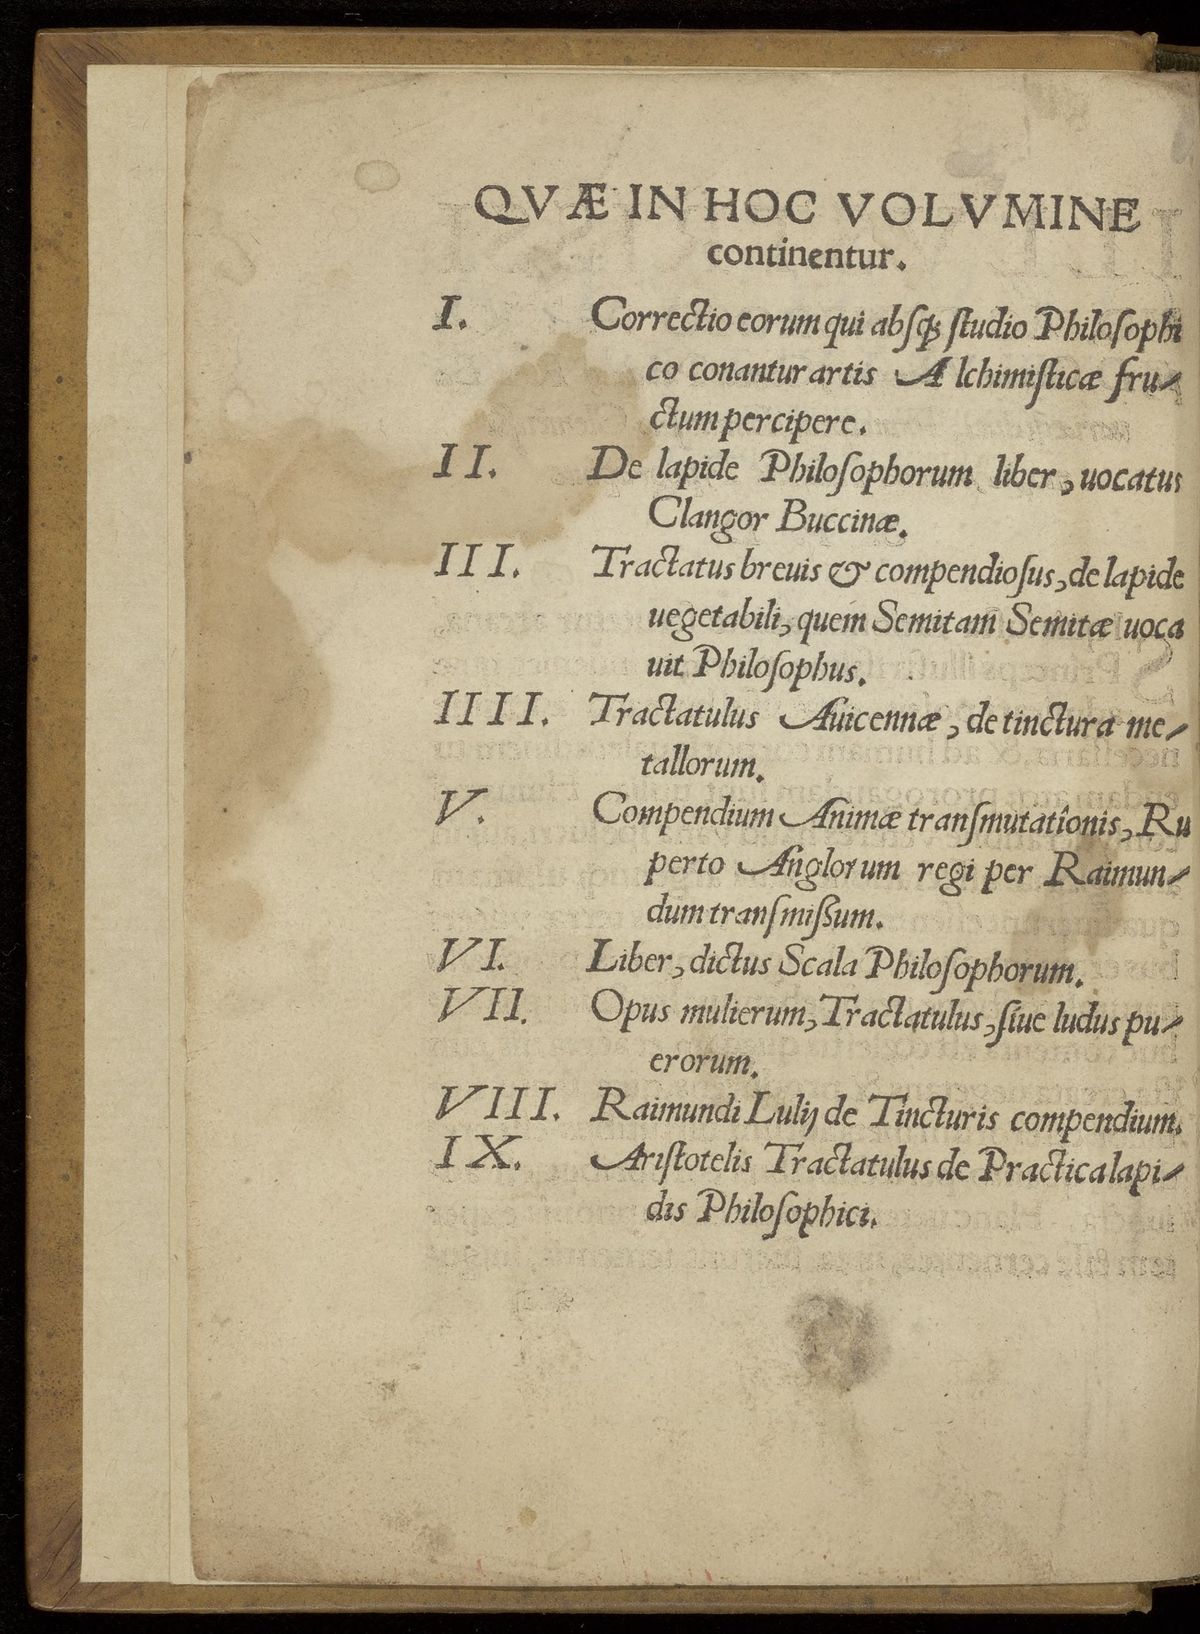 QVÆ IN HOC VOLVMINE
continentur.
I. Correctio eorum qui absq; ſtudio Philoſophi
co conantur artis Alchimiſticæ fru-
ctum percipere.
II. De lapide Philoſophorum liber, uocatus
Clangor Buccinæ.
III. Tractatus breuis & compendioſus, de lapide
uegetabili, quem Semitam Semitæ uoca
uit Philoſophus.
IIII. Tractatulus Auicennæ, de tinctura me-
tallorum.
V. Compendium Animæ tranſmutationis, Ru
perto Anglorum regi per Raimun-
dum tranſmiſſum.
VI. Liber, dictus Scala Philoſophorum.
VII. Opus mulierum, Tractatulus, ſiue ludus pu-
erorum.
VIII. Raimundi Lulij de Tincturis compendium.
IX. Ariſtotelis Tractatulus de Practica lapi-
dis Philoſophici.